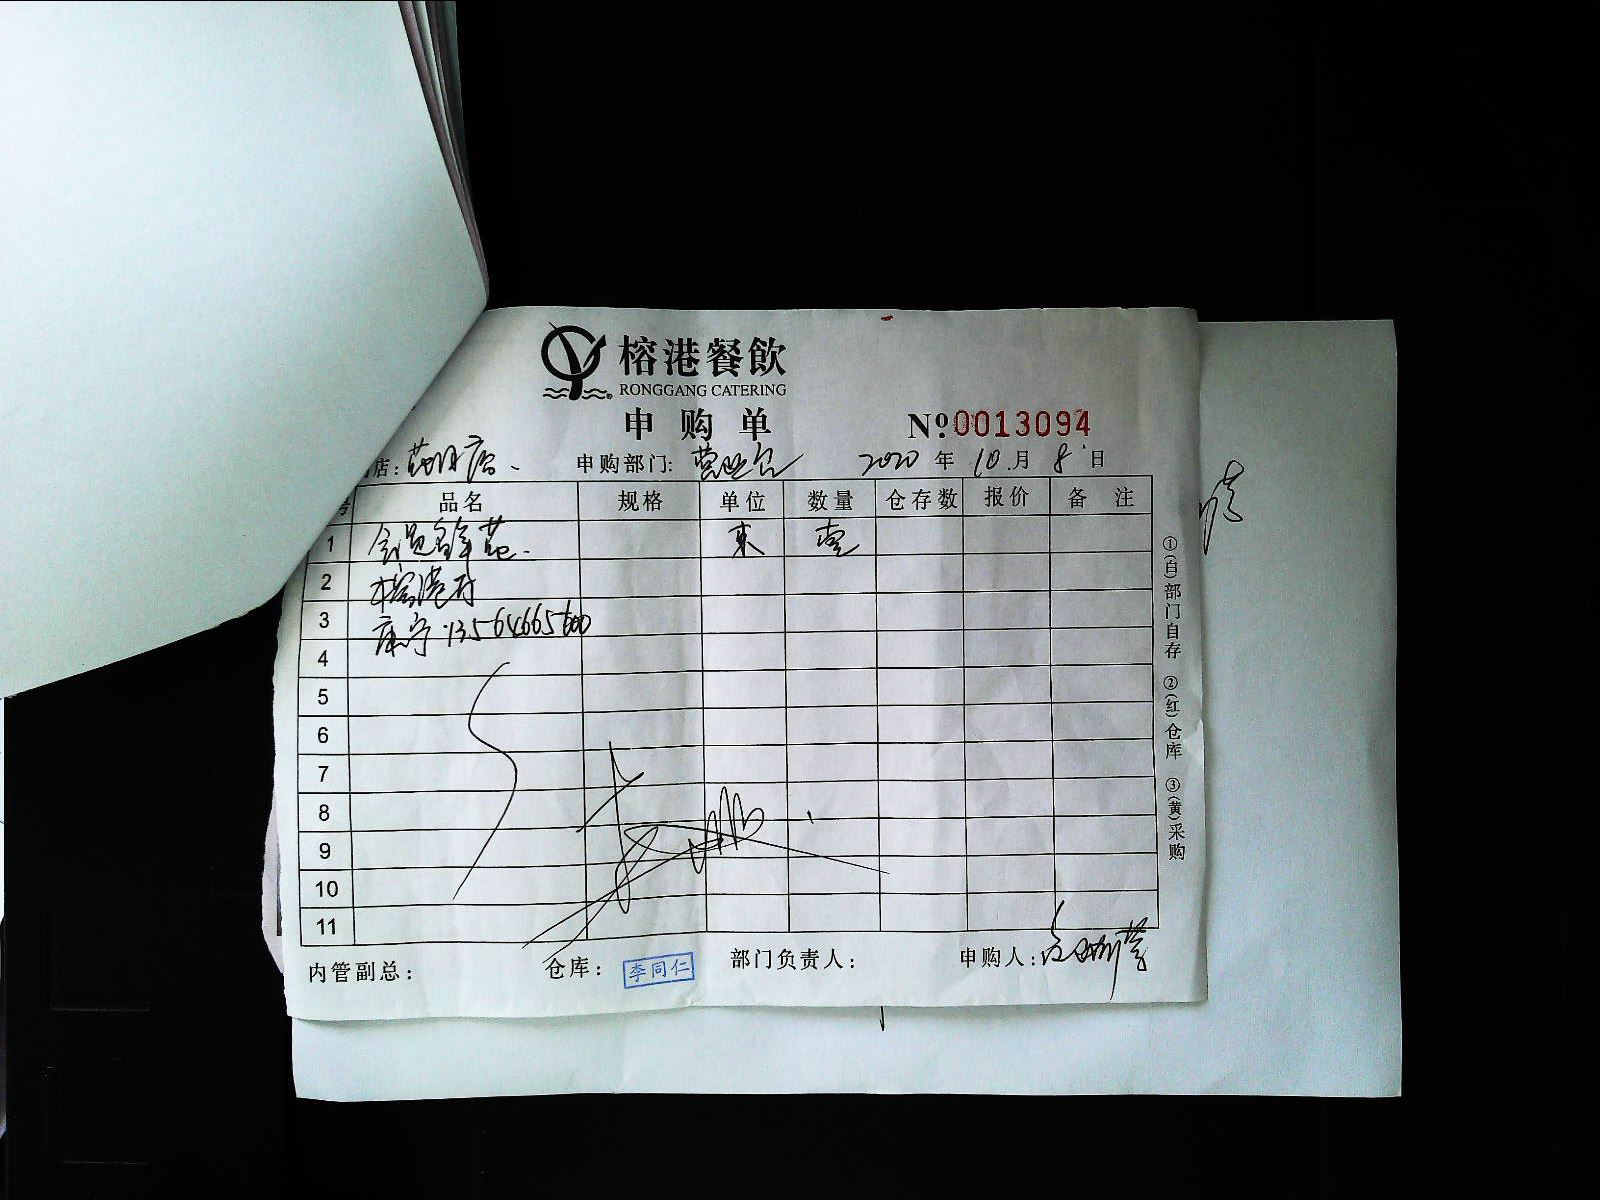 榕港餐飲
RONGGANG CATERING
申购单 Nº 0013094
店: 店 申购部门: 营业台 2020 年 10 月 8 日
号 品名 规格 单位 数量 仓存数 报价 备 注
1 束 壹
2 榕港
3 康宁 13564665600
4
5
6
7
8
9
10
11
内管副总: 仓库: 李同仁 部门负责人: 申购人:
①(白)部门自存 ②(红)仓库 ③(黄)采购